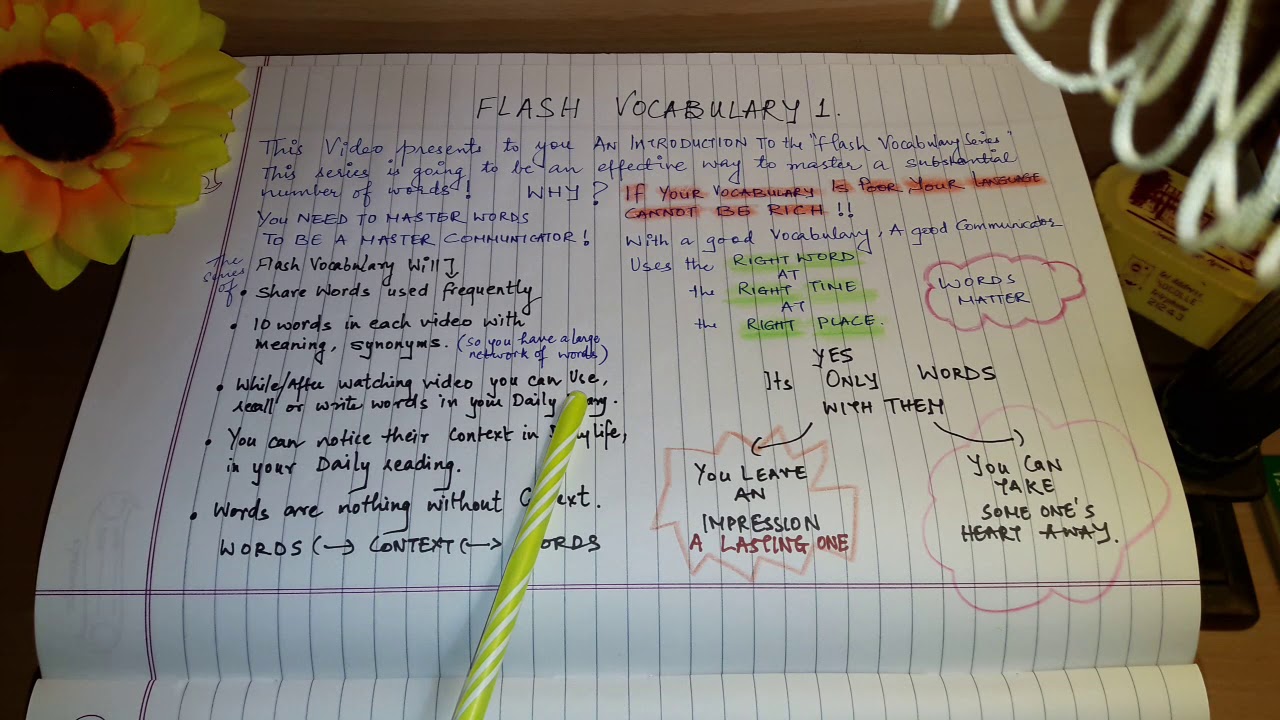 FLASH VOCABULARY 1.
This Video presents to you AN INTRODUCTION TO the "Flash Vocabulary Series"
This series is going to be an effective way to master a substantial
number of words! WHY?
YOU NEED TO MASTER WORDS
TO BE A MASTER COMMUNICATOR!
The series of
Flash Vocabulary Will
• Share words used frequently
• 10 words in each video with
meaning, synonyms. (so you have a large
network of words)
• While/After watching video you can Use,
recall or write words in your Daily
• You can notice their Context in life,
in your Daily reading.
• Words are nothing without
WORDS ↔ CONTEXT ↔
IF YOUR VOCABULARY IS POOR, YOUR LANGUAGE
CANNOT BE RICH!!
With a good Vocabulary, A good Communicator
Uses the RIGHT WORD
AT
the RIGHT TIME
AT
the RIGHT PLACE.
WORDS
MATTER
YES
Its ONLY WORDS
WITH THEM
YOU LEAVE
AN
IMPRESSION
A LASTING ONE
YOU CAN
TAKE
SOME ONE'S
HEART AWAY.